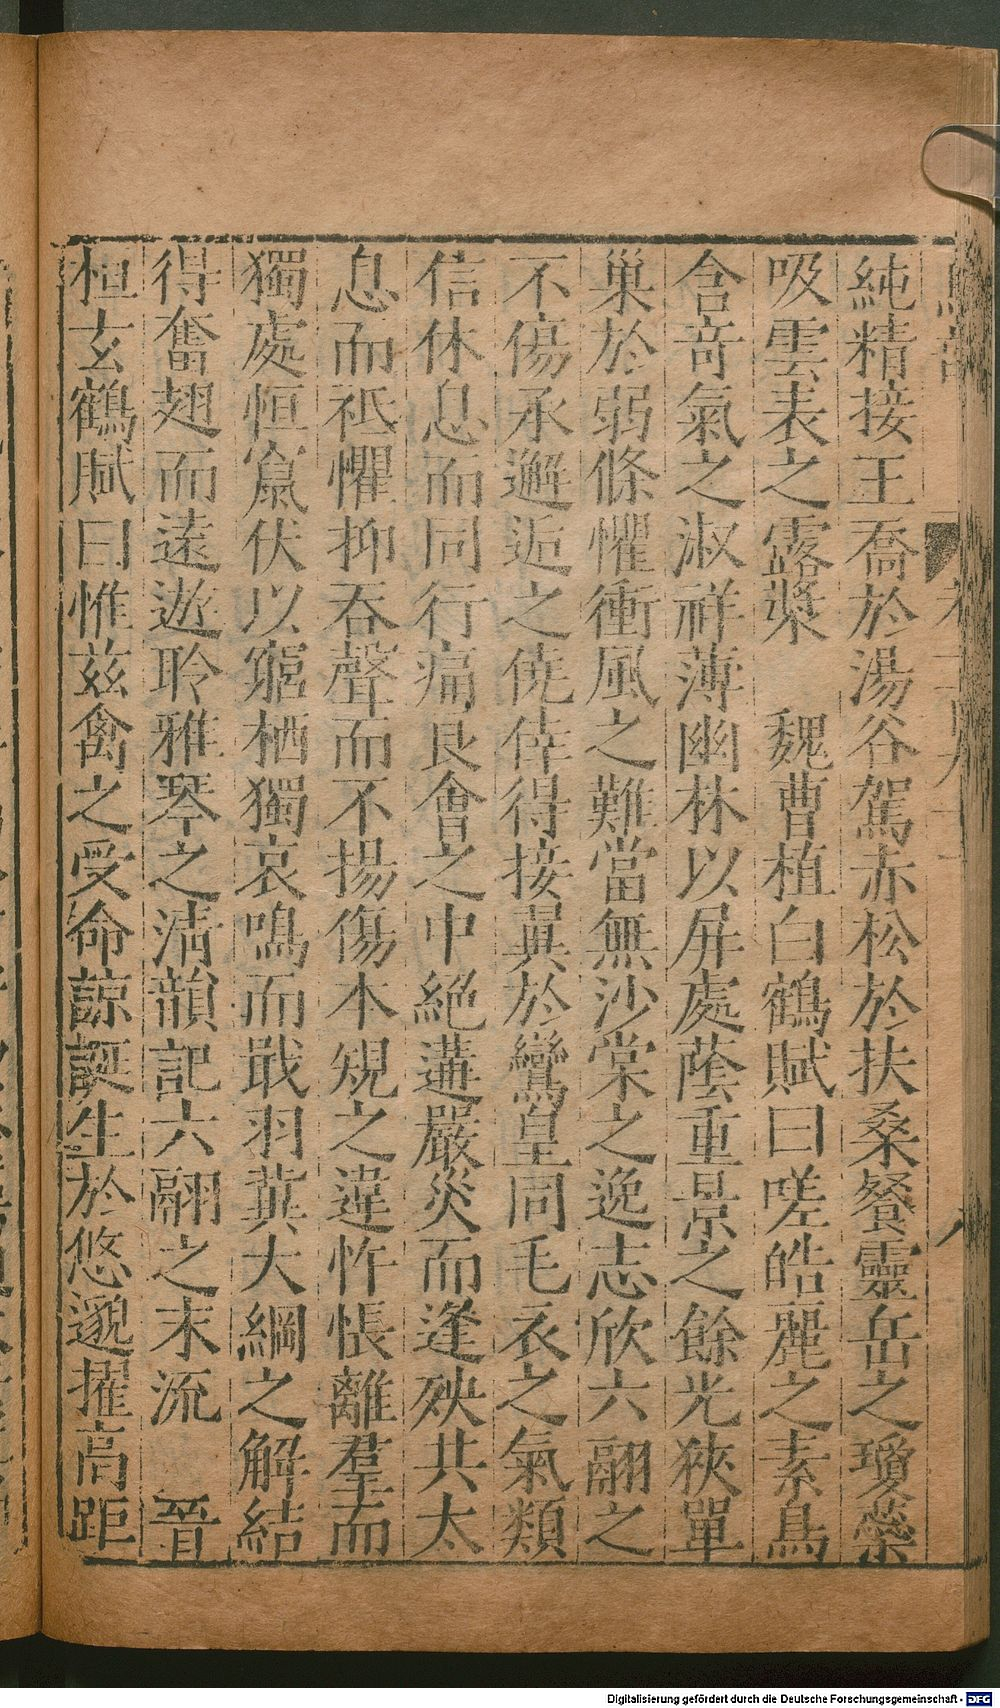 純精接王喬於湯谷駕赤松於扶桑餐靈岳之瓊蘂
吸雲表之露漿　魏曹植白鶴賦曰嗟皓麗之素鳥
含奇氣之淑祥薄幽林以屏處蔭重景之餘光狹單
巢於弱條懼衝風之難當無沙棠之逸志欣六翮之
不傷承邂逅之僥倖得接翼於鸞皇同毛衣之氣類
信休息而同行痛良會之中絕遘嚴災而逢殃共太
息而祗懼抑吞聲而不揚傷本規之違忤悵離羣而
獨處恒竄伏以窮栖獨哀鳴而戢羽冀大綱之解結
得奮翅而遠遊聆雅琴之清韻記六翮之末流　晉
桓玄鶴賦曰惟茲禽之受命諒誕生於悠邈擢高距
Digitalisierung gefördert durch die Deutsche Forschungsgemeinschaft - DFG